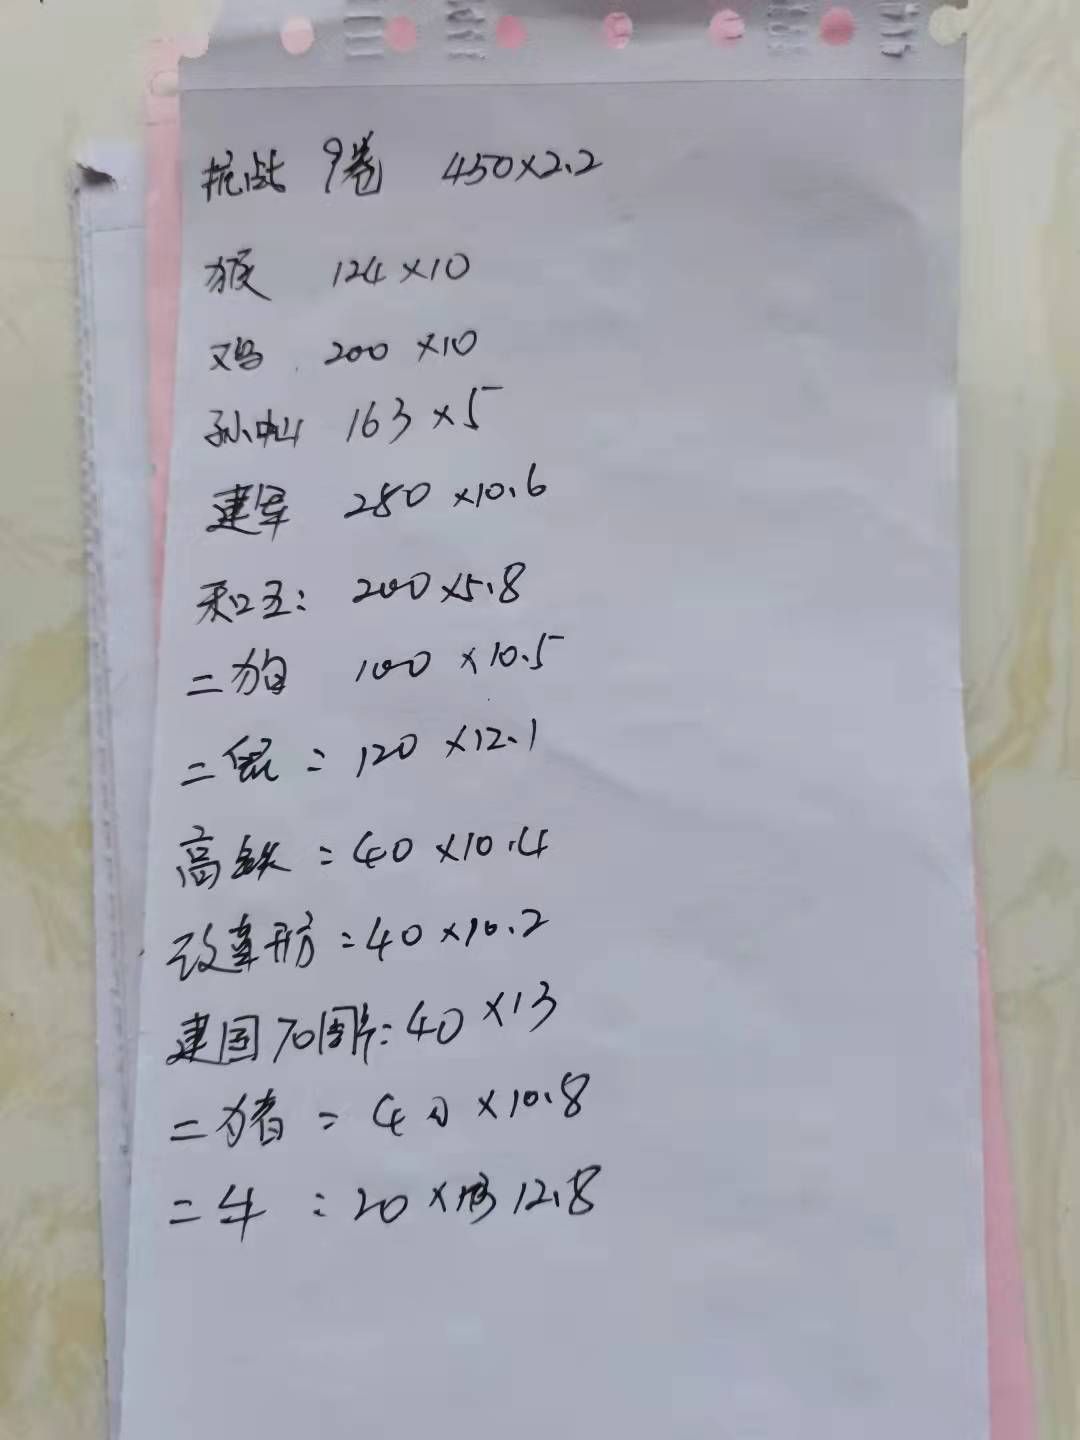 抗战 9卷 450×2.2
猴 124×10
鸡 200×10
孙中山 163×5
建军 280×10.6
和五: 200×5.8
二狗 100×10.5
二鼠: 120×12.1
高铁: 40×10.4
改革币: 40×10.2
建国70周年: 40×13
二猪: 40×10.8
二牛: 20× 12.8